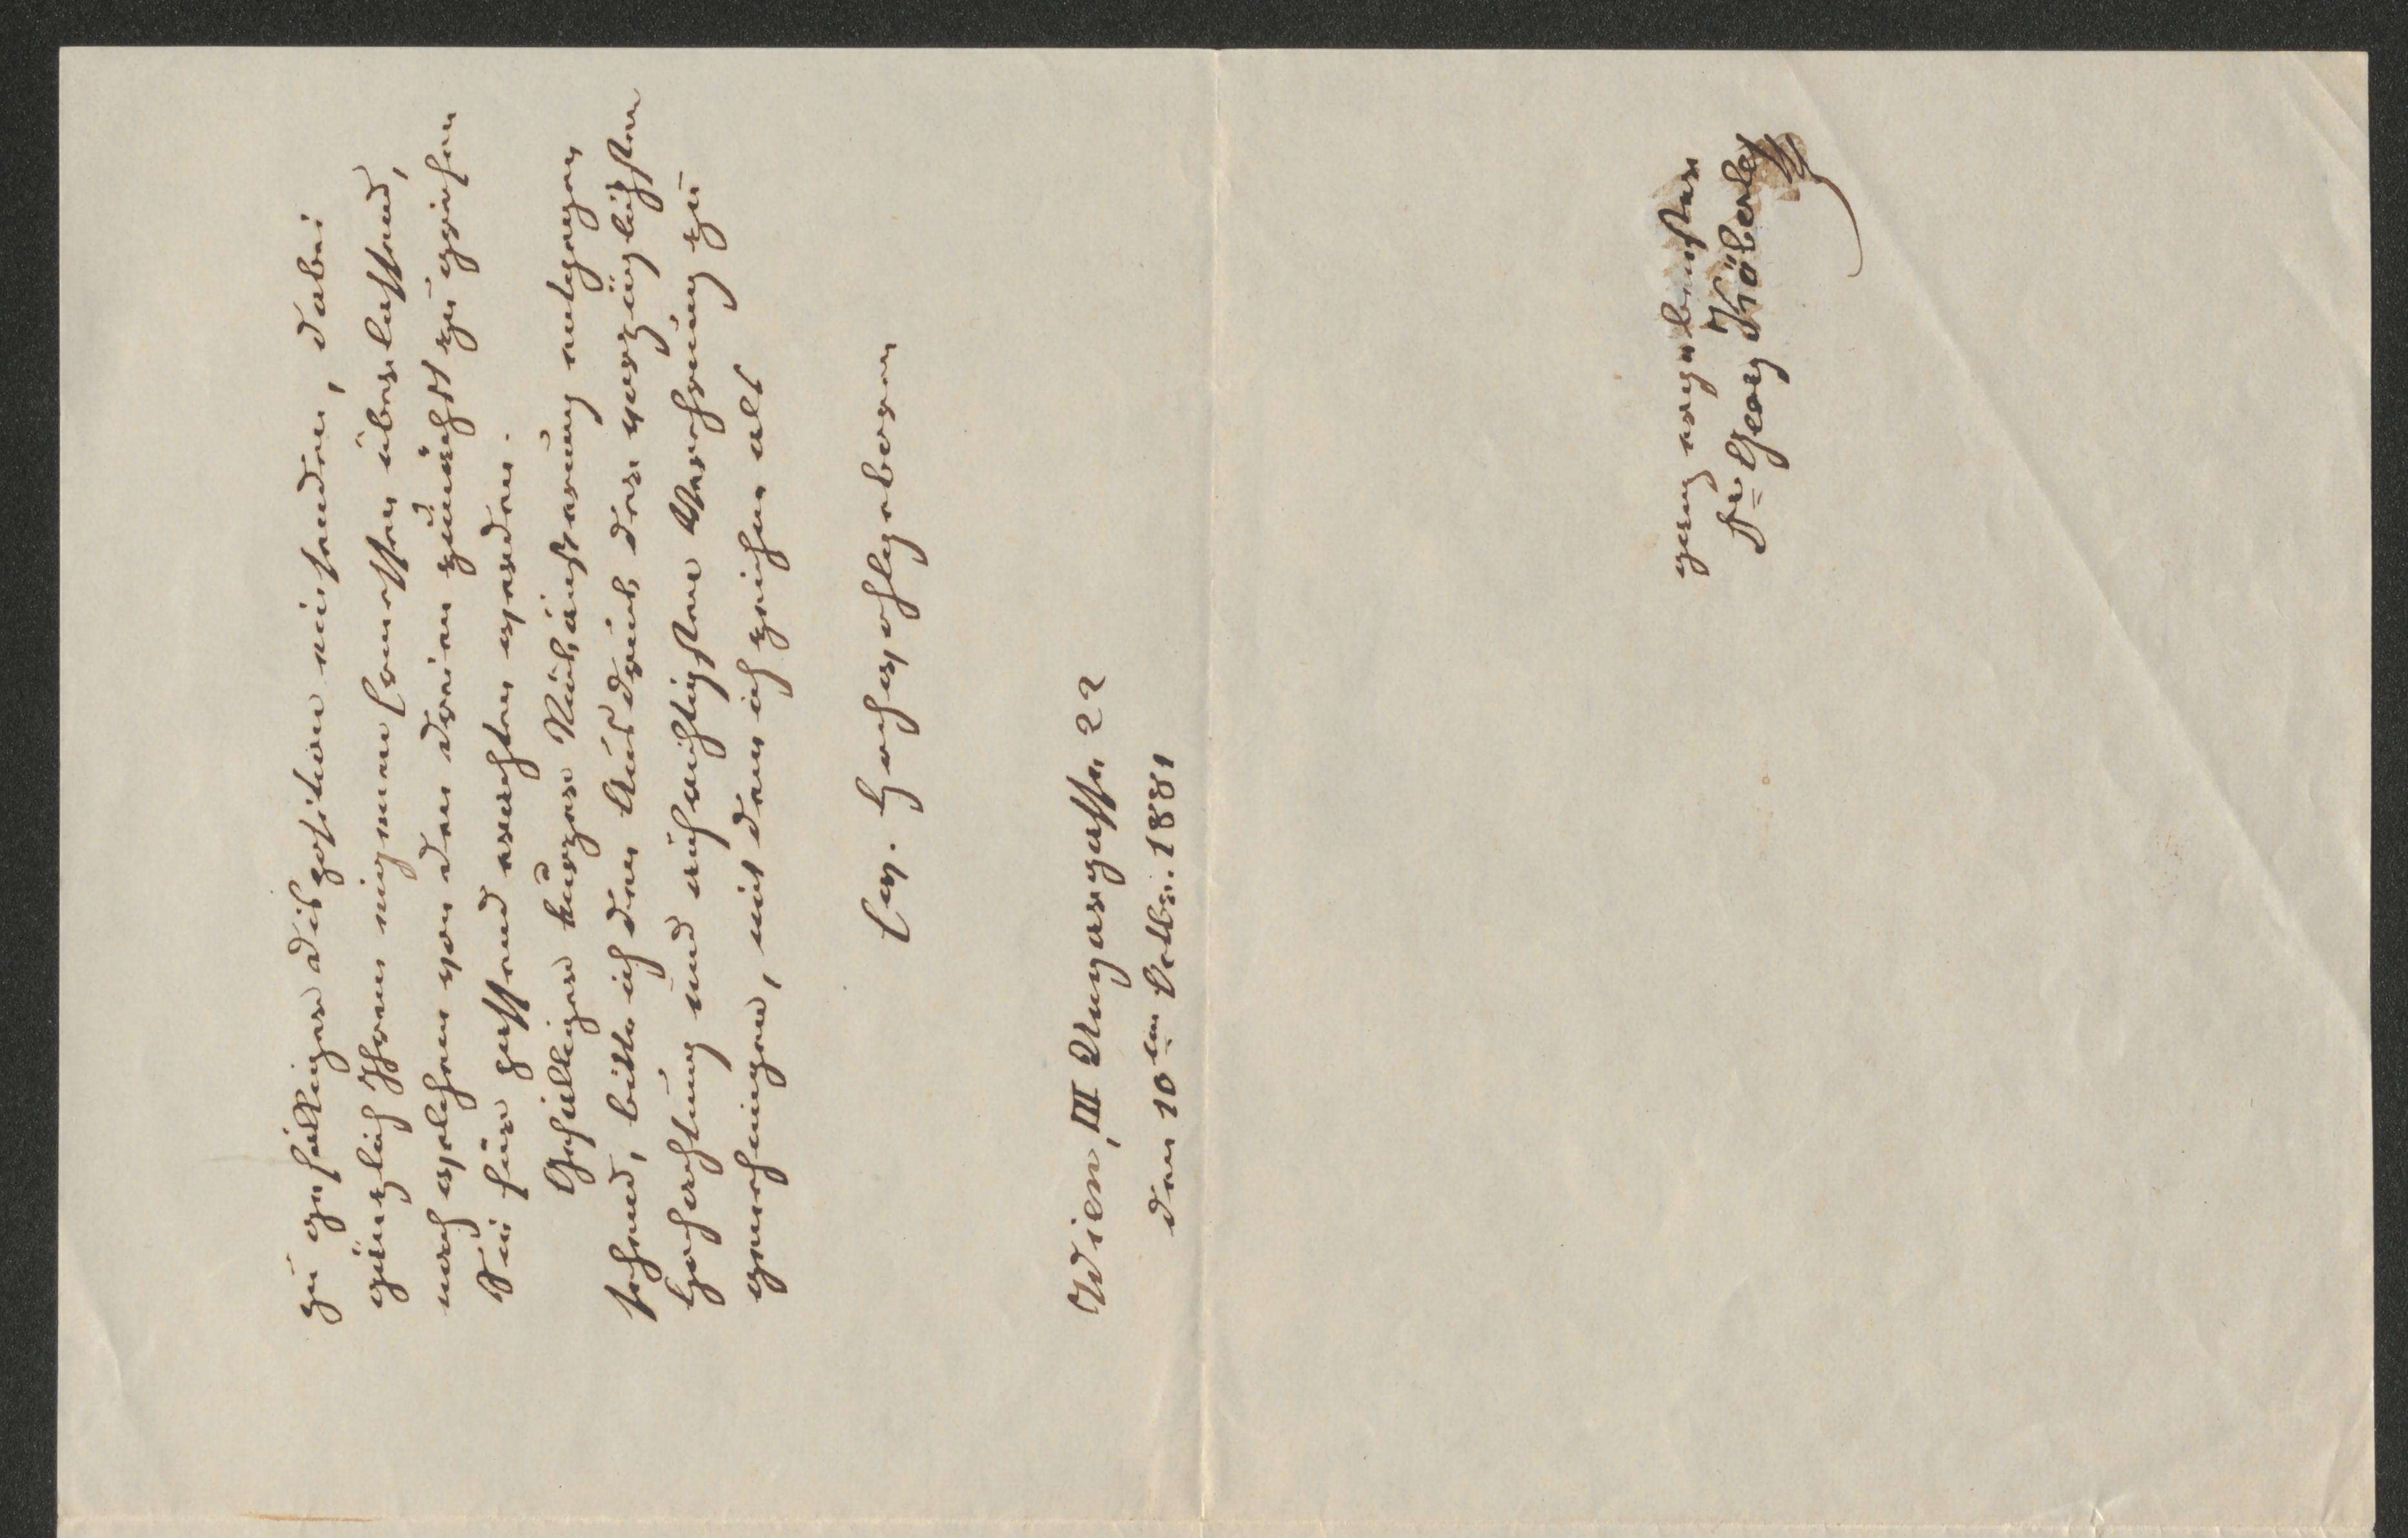 zu gefälliger Disposition einsenden, dabei
gänzlich Ihrem eigenen Ermessen überlassend,
nach welchem von den dreien zunächst zu greifen
Sie für passend erachten werden.
Gefälliger kurzer Rückäußerung entgegen
sehend, bitte ich den Ausdruck der vorzüglichsten
Hochachtung und aufrichtigsten Verehrung zu
genehmigen, mit dem ich zeichne als
Ew. Hochwohlgeboren
Wien, III Ungargasse 22
den 10ten Octbr. 1881
ganz ergebenster
Dr Georg Köberle